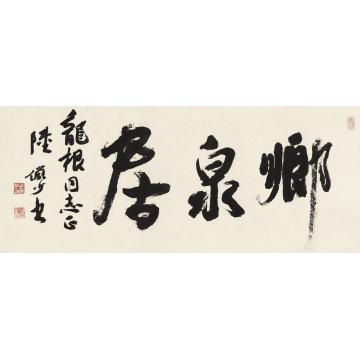 鄉泉居
龍根同志正
陸儼少書